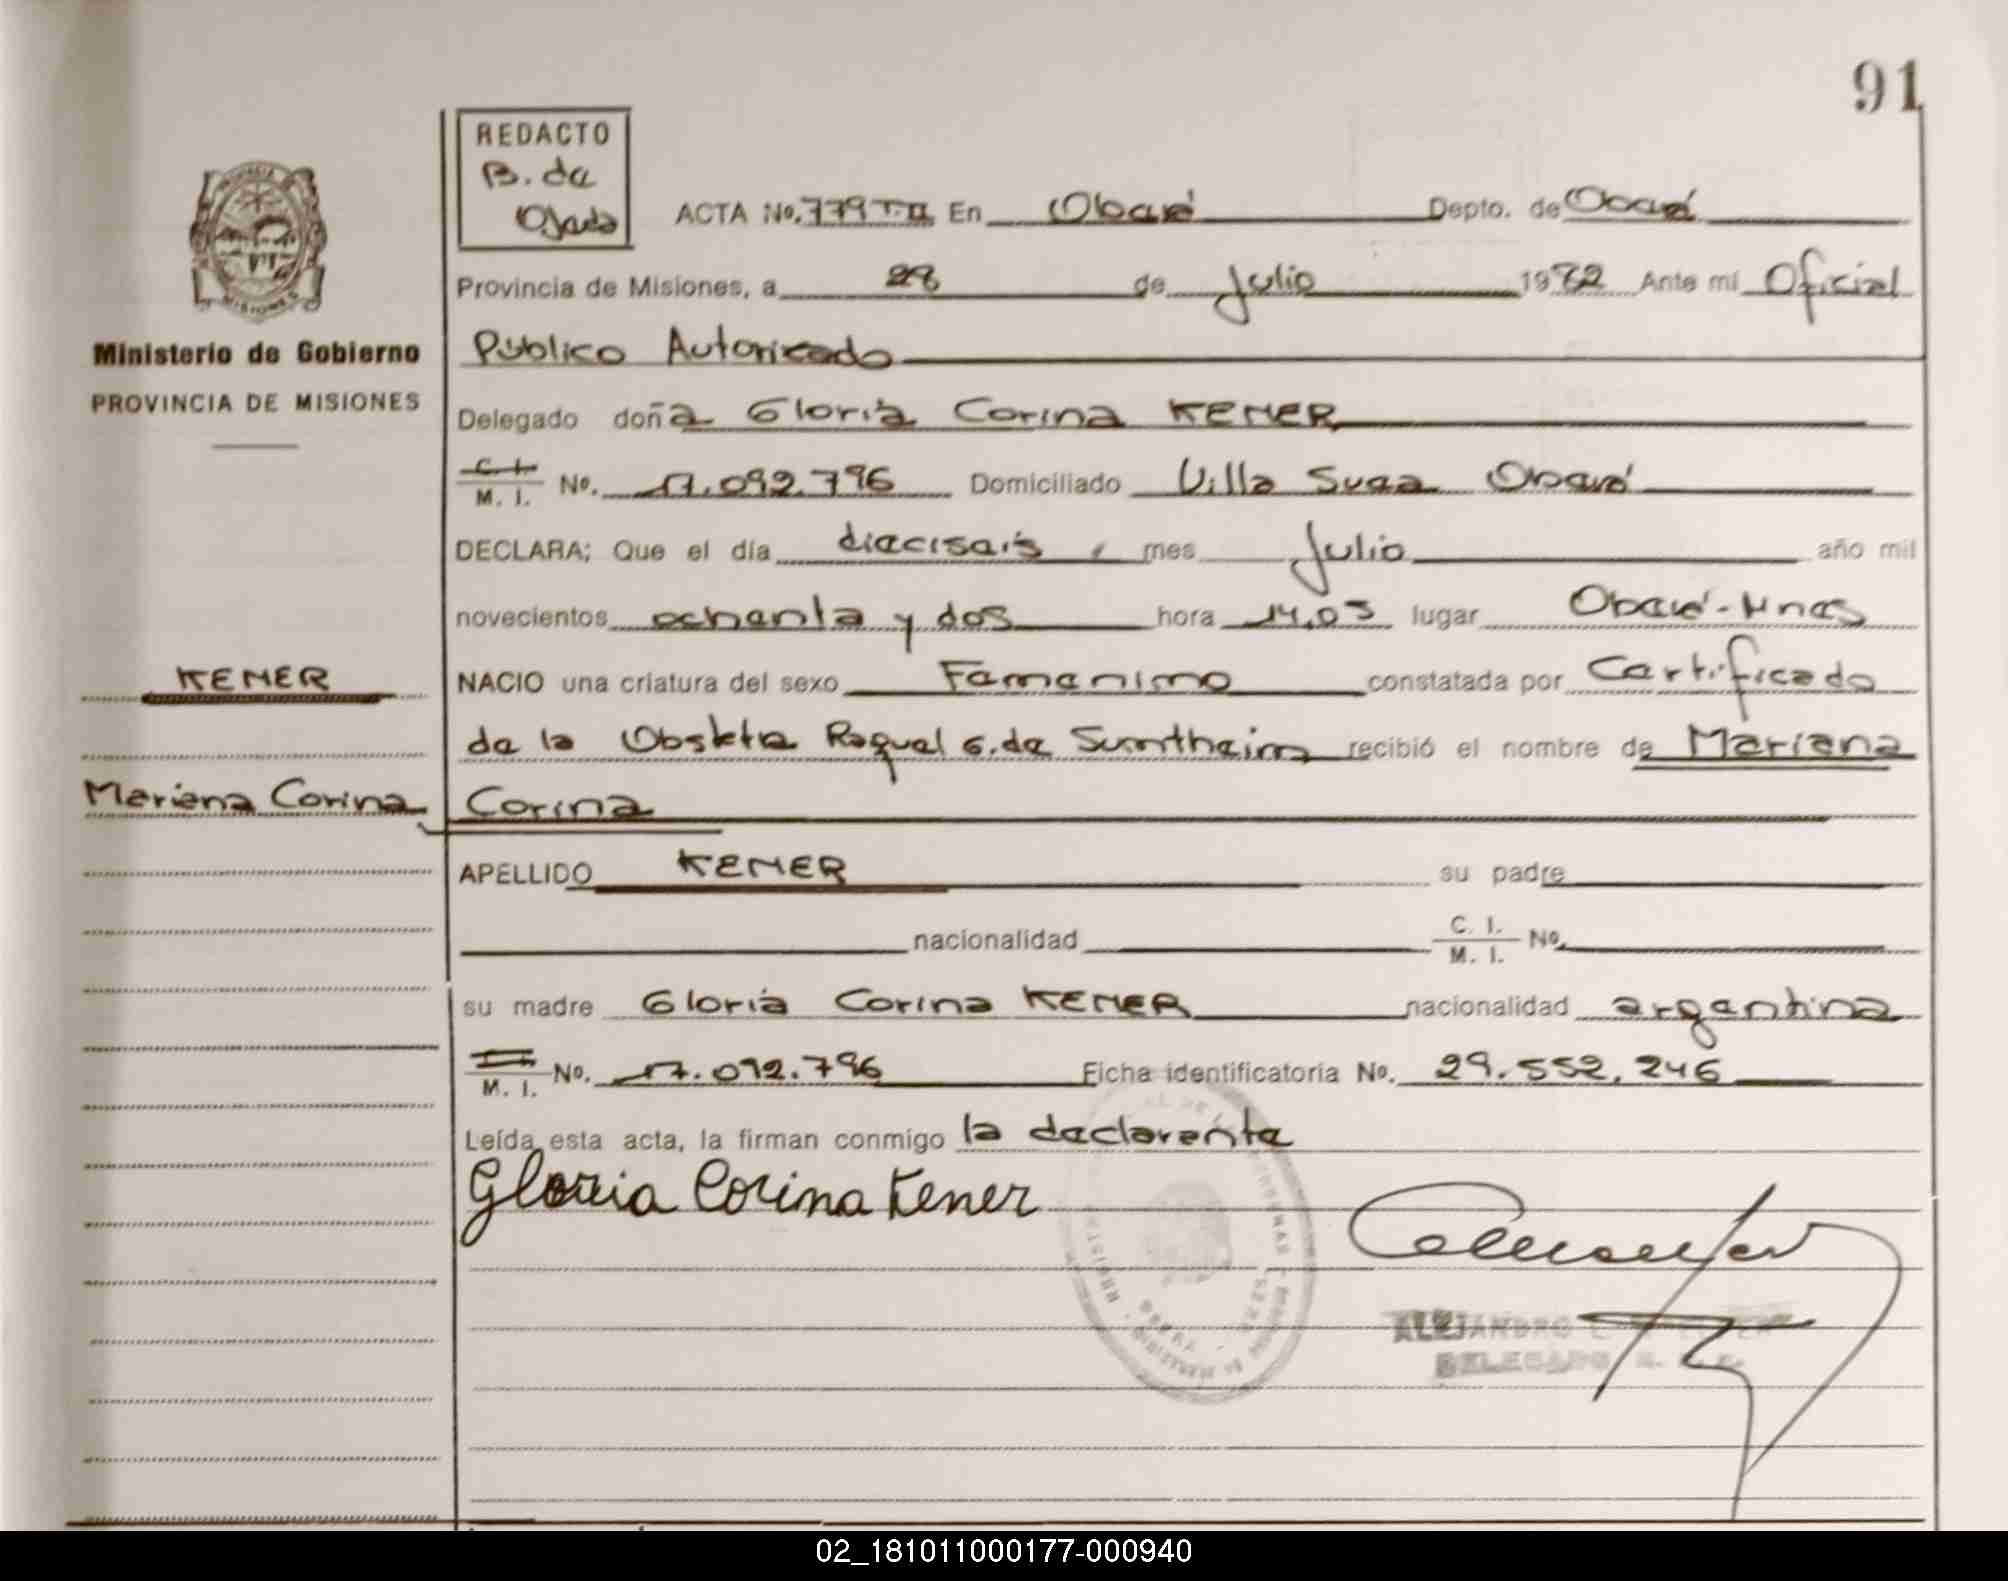 91
REDACTO
B. de
Ojeda
ACTA No. 779 T-II En Oberá Depto. de Oberá
Provincia de Misiones, a 28 de Julio 1982 Ante mi Oficial
Ministerio de Gobierno
Público Autorizado
PROVINCIA DE MISIONES
Delegado doña Gloria Corina KENER
C. I. M. I. No. 17.092.796 Domiciliado Villa Svea Oberá
DECLARA; Que el día dieciseis, mes Julio año mil
novecientos ochenta y dos hora 14,05 lugar Oberá-Mnes
KENER
NACIO una criatura del sexo Femenino constatada por Certificado
de la Obstetra Raquel G. de recibió el nombre de Mariana
Mariana Corina
Corina
APELLIDO KENER su padre
nacionalidad C. I. M. I. No.
su madre Gloria Corina KENER nacionalidad argentina
M. I. No. 17.092.796 Ficha identificatoria No. 29.552.246
Leída esta acta, la firman conmigo la declarente
Gloria Corina Kener
ALEJANDRO
DELEGADO
02_181011000177-000940